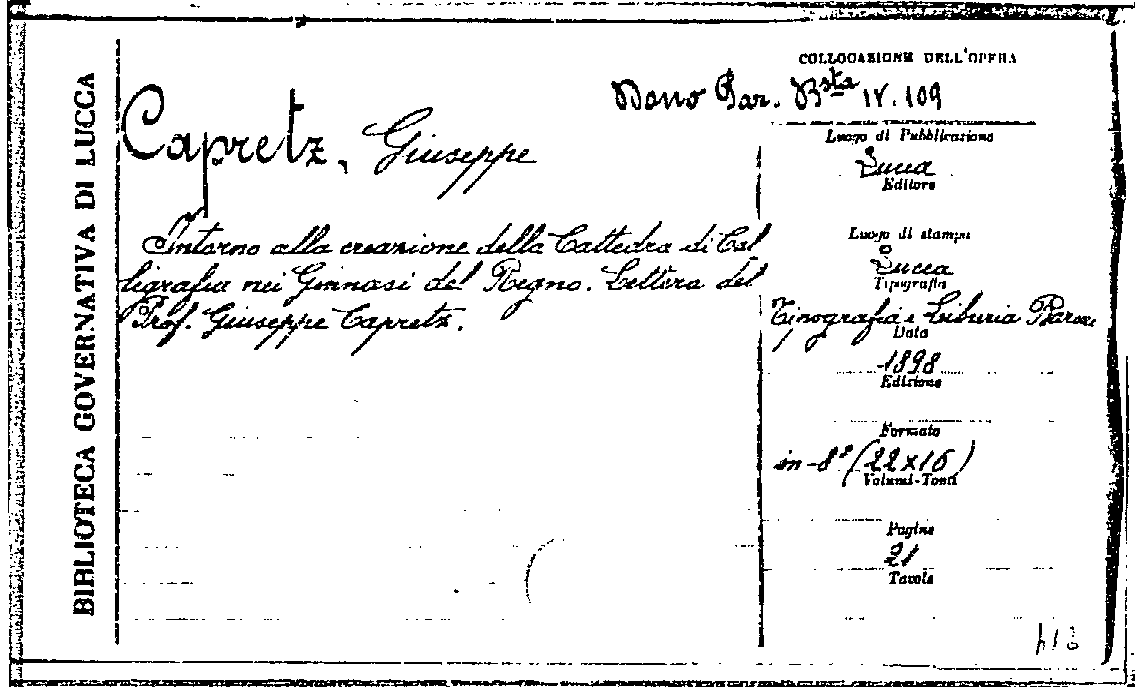 BIBLIOTECA GOVERNATIVA DI LUCCA
COLLOCAZIONE DELL'OPERA
Dono Bar. Bsta IV. 109
Capretz, Giuseppe
Intorno alla creazione della Cattedra di Cal
ligrafia nei Ginnasi del Regno. Lettera del
Prof. Giuseppe Capretz.
Luogo di Pubblicazione
Lucca
Editore
Luogo di stampa
Lucca
Tipografia
Tipografia e Libreria Baroni
Data
1898
Edizione
Formato
in-8° (22x16)
Volumi-Tomi
Pagine
21
Tavole